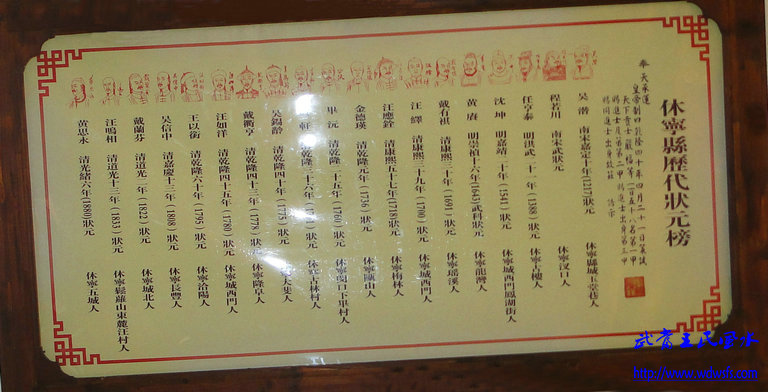 休寧縣歷代狀元榜
奉天承運
皇帝制曰乾隆四十年四月二十一日策試
天下貢士嚴福等一百五十八名第一甲
賜進士及第第二甲賜進士出身第三甲
賜同進士出身故茲誥示
吳潛 南宋嘉定十年(1217)狀元 休寧縣城玉堂巷人
程若川 南宋武狀元 休寧汊口人
任亨泰 明洪武二十一年(1388)狀元 休寧古樓人
沈坤 明嘉靖二十年(1541)狀元 休寧城西門鳳湖街人
黃賡 明崇禎十六年(1643)武科狀元 休寧龍灣人
戴有祺 清康熙三十年(1691)狀元 休寧瑤溪人
汪繹 清康熙三十九年(1700)狀元 休寧城西門人
汪應銓 清康熙五十七年(1718)狀元 休寧梅林人
金德瑛 清乾隆元年(1736)狀元 休寧甌山人
畢沅 清乾隆二十五年(1760)狀元 休寧閔口下畢村人
軒 清乾隆三十六年(1771)狀元 休寧古林村人
吳錫齡 清乾隆四十年(1775)狀元 大斐人
戴衢亨 清乾隆四十三年(1778)狀元 休寧隆阜人
汪如洋 清乾隆四十五年(1780)狀元 休寧城西門人
王以銜 清乾隆六十年(1795)狀元 休寧洽陽人
吳信中 清嘉慶十三年(1808)狀元 休寧長豐人
戴蘭芬 清道光二年(1822)狀元 休寧城北人
汪鳴相 清道光十三年(1833)狀元 休寧鬆蘿山東麓汪村人
黃思永 清光緒六年(1880)狀元 休寧五城人
武夷王氏風水
http://www.wdwsfs.com